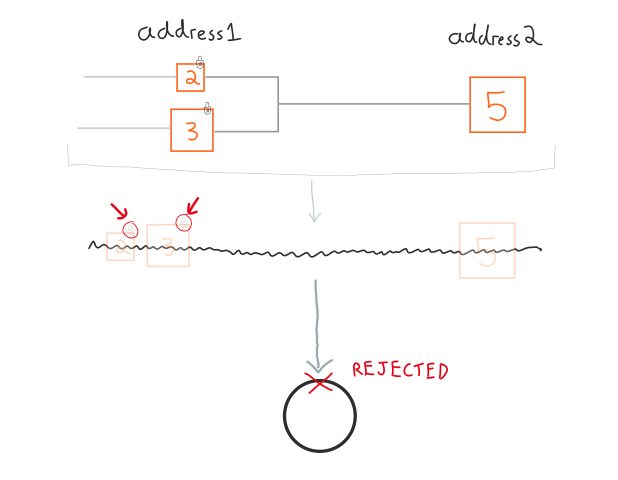 address1
address2
2
3
5
2 3 5
REJECTED